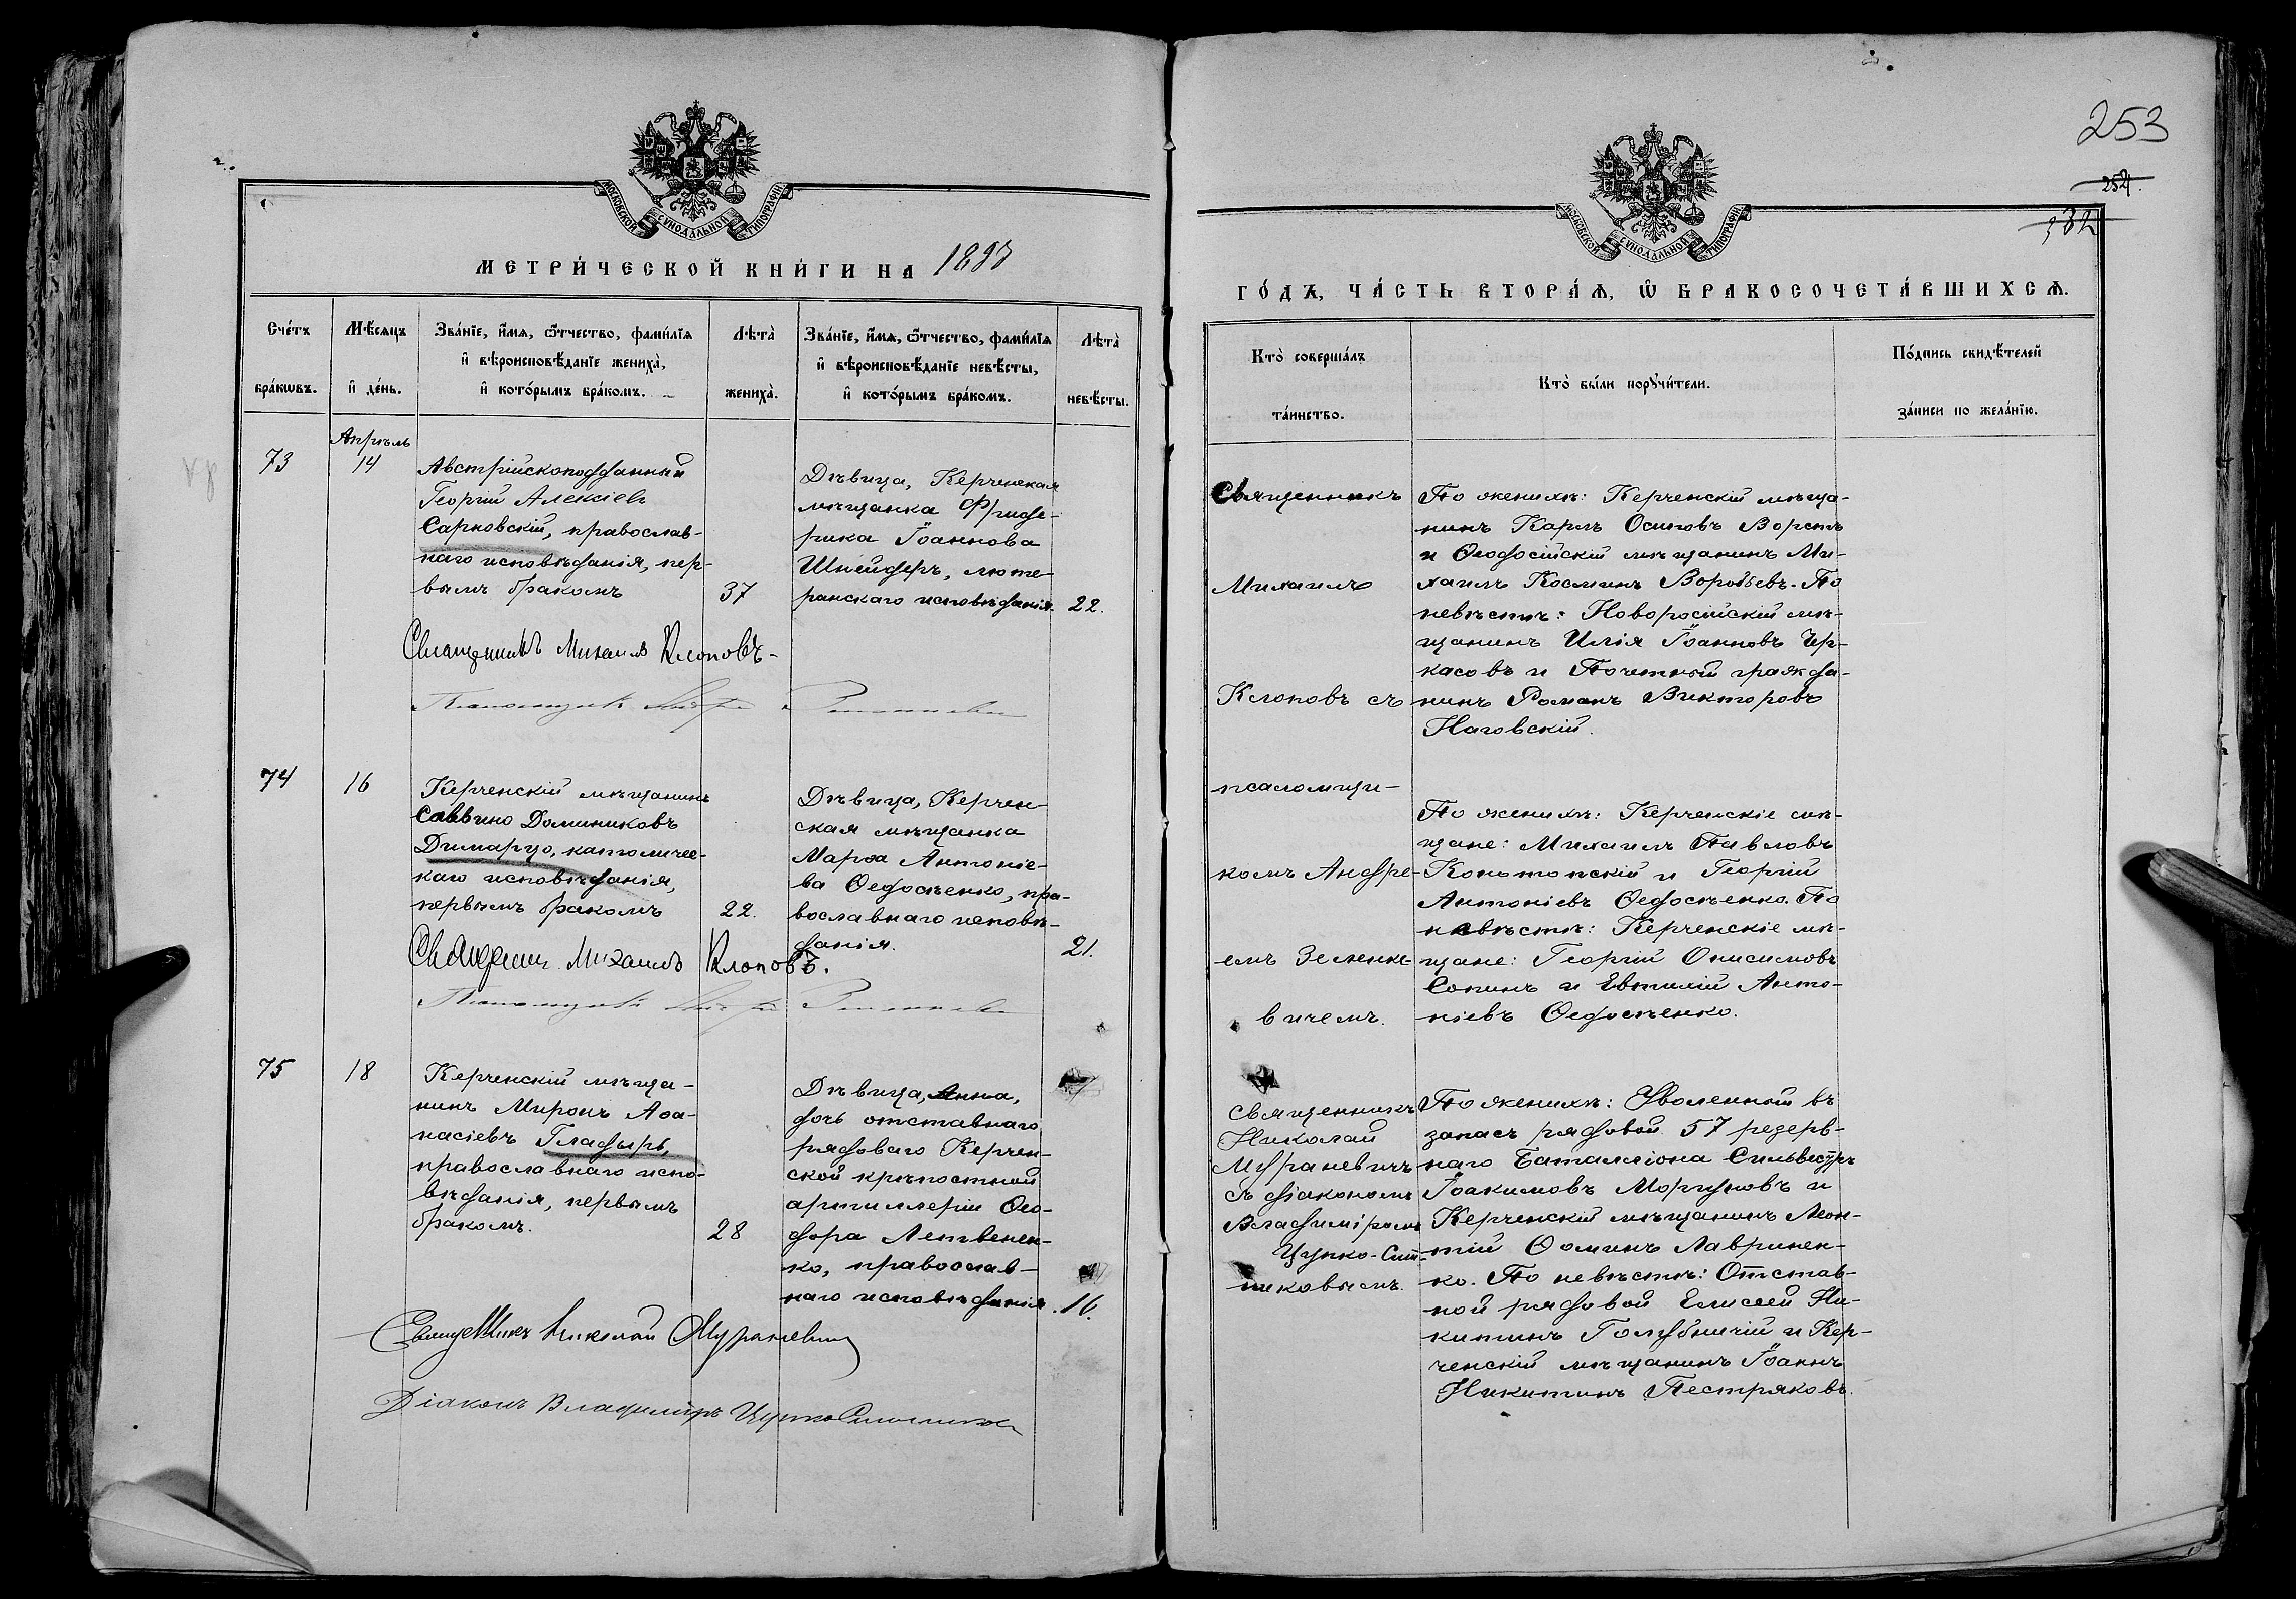 253
254.
332
МОСКОВСКОЙ СѴНОДАЛЬНОЙ ТИПОГРАФІИ
МЕТРИ́ЧЕСКОЙ КНИ́ГИ НА 1893
Сче́тъ бра́кѡвъ.
Мѣ́сѧцъ и҆ де́нь.
Зва́нїе, и҆́мѧ, ѻ҆́тчество, фами́лїѧ
и҆ вѣроисповѣ́данїе жениха̀,
и҆ кото́рымъ бра́комъ.
Лѣта̀ жениха̀.
Зва́нїе, и҆́мѧ, ѻ҆́тчество, фами́лїѧ
и҆ вѣроисповѣ́данїе невѣ́сты,
и҆ кото́рымъ бра́комъ.
Лѣта̀ невѣ́сты.
73
Апрѣль
14
Австрійскоподданный
Георгій Алексіевъ
Сарновскій, православ-
наго исповѣданія, пер-
вымъ бракомъ
37
Дѣвица, Керченская
мѣщанка Фриде-
рика Іоаннова
Шнейдеръ, люте
ранскаго исповѣданія.
22.
Священникъ Михаилъ Клоповъ-
Псаломщикъ Андрей
74
16
Керченскій мѣщанинъ
Саввино Доминиковъ
Димарцо, католичес-
каго исповѣданія,
первымъ бракомъ
22.
Дѣвица, Керчен-
ская мѣщанка
Марѳа Антоніе-
ва Ѳедосѣенко, пра-
вославнаго исповѣ-
данія.
21.
Священник Михаилъ Клоповъ.
Псаломщикъ Андрей
75
18
Керченскій мѣща-
нинъ Миронъ Аѳа-
насіевъ Гладырь,
православнаго испо-
вѣданія, первымъ
бракомъ.
28
Дѣвица, Анна,
дочь отставнаго
рядоваго Керчен-
ской крѣпостной
артиллеріи Ѳео-
дора Летвенен-
ко, православ-
наго исповѣданія.
16.
Священникъ Николай Мураневичъ
Діаконъ Владиміръ Цупко-Ситниковъ
МОСКОВСКОЙ СѴНОДАЛЬНОЙ ТИПОГРАФІИ
ГО́ДЪ, ЧА́СТЬ ВТОРА́Ѧ, Ѡ҆ БРАКОСОЧЕТА́ВШИХСѦ.
Кто̀ соверша́лъ та́инство.
Кто̀ бы́ли порꙋчи́тели.
По́дпись свидѣ́телей за́писи по жела́нїю.
Священникъ
Михаилъ
Клоповъ съ
псаломщи-
комъ Андре-
емъ Зеленке-
вичемъ.
По женихѣ: Керченскій мѣща-
нинъ Карлъ Осиповъ Ворстъ
и Ѳеодосійскій мѣщанинъ Ми-
хаилъ Косминъ Воробьевъ. По
невѣстѣ: Новоросійскій мѣ-
щанинъ Илія Іоанновъ Чер-
касовъ и Почетный гражда-
нинъ Романъ Викторовъ
Наговскій.
По женихѣ: Керченскіе мѣ-
щане: Михаилъ Павловъ
Конотопскій и Георгій
Антоніевъ Ѳедосѣенко. По
невѣстѣ: Керченскіе мѣ-
щане: Георгій Онисимовъ
Сопинъ и Евтихій Анто-
ніевъ Ѳедосѣенко.
священникъ
Николай
Мураневичъ
съ діакономъ
Владиміромъ
Цупко-Сит-
никовымъ.
По женихѣ: Уволенный въ
запасъ рядовой 57 резерв-
наго Баталліона Сильвестръ
Іоакимовъ Моргуновъ и
Керченскій мѣщанинъ Леон-
тій Ѳоминъ Лавринен-
ко. По невѣстѣ: Отстав-
ной рядовой Елисей Ни-
китинъ Голубничій и Кер-
ченскій мѣщанинъ Іоаннъ
Никитинъ Пестряковъ.